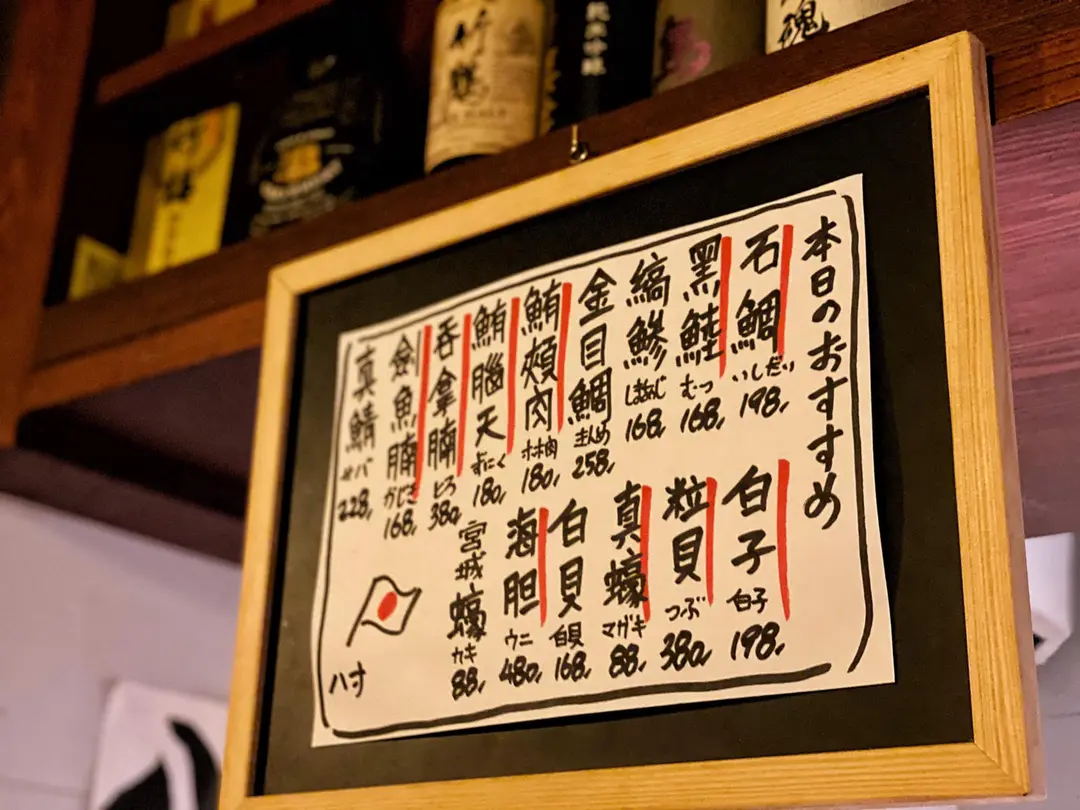 本日のおすすめ
石鯛 いしだい 198,
黑鯥 むつ 168,
縞鰺 しまあじ 168,
金目鯛 きんめ 258,
鮪頰肉 ホホ肉 180,
鮪腦天 ずにく 180,
吞拿腩 とろ 380,
劍魚腩 かじき 168,
真鯖 サバ 228,
白子 白子 198,
粒貝 つぶ 380,
真蠔 マガキ 88,
白貝 白貝 168,
海胆 ウニ 480,
宮城蠔 カキ 88,
八寸
竹鶴
純米吟醸
魂